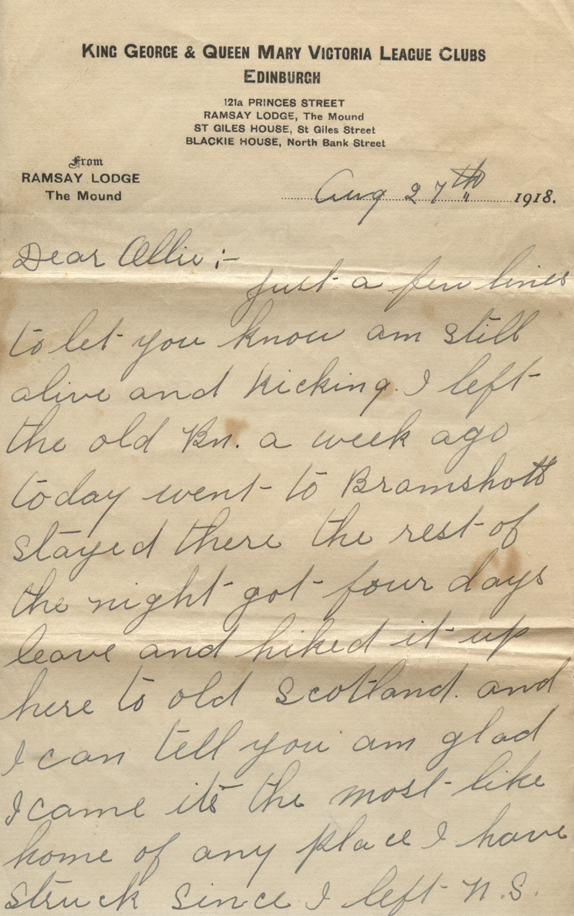 KING GEORGE & QUEEN MARY VICTORIA LEAGUE CLUBS
EDINBURGH
121a PRINCES STREET
RAMSAY LODGE, The Mound
ST GILES HOUSE, St Giles Street
BLACKIE HOUSE, North Bank Street
From
RAMSAY LODGE
The Mound
Aug 27th 1918.
Dear Ollie :-
just a few lines
to let you know am still
alive and kicking. I left
the old Bn. a week ago
today went to Bramshott
stayed there the rest of
the night got four days
leave and hiked it up
here to old Scotland. and
I can tell you am glad
I came its the most like
home of any place I have
struck since I left N.S.